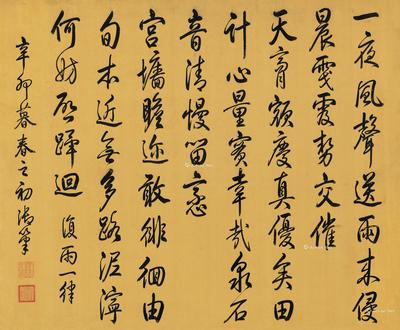 一夜風聲送雨來侵
晨勢交催
天膏額慶真優矣田
計心量實幸哉泉石
音清慢留戀
宮墻瞻迩敢徘徊由
旬本近無多路泥濘
何妨啓蹕迴 復雨一律
辛卯暮春之初御筆